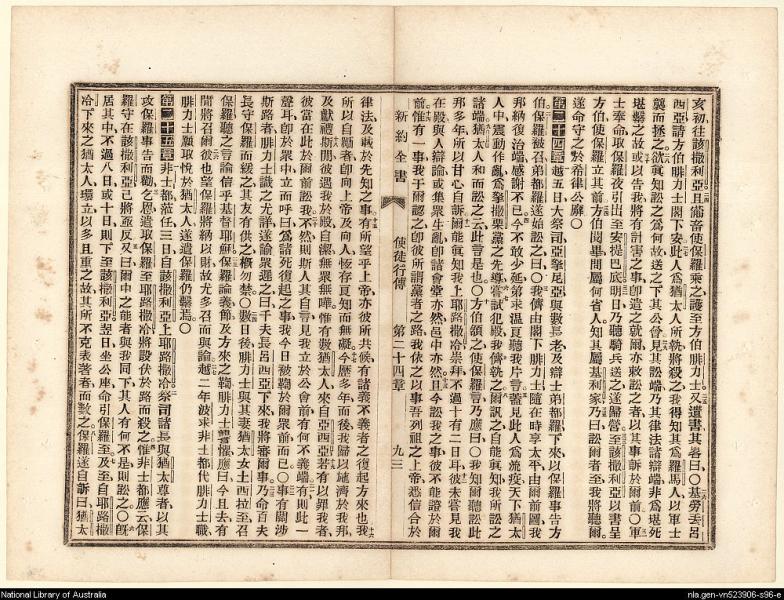 亥初往該撒利亞且備畜使保羅乘之護至方伯腓力士又遺書其畧曰〇基勞丟呂
西亞請方伯腓力士閣下安此人爲猶太人所執將殺之我得知其爲羅馬人以軍士
襲而拯之欲眞知訟之爲何故送之下其公會見其訟端乃其律法諸辯端非爲堪死
堪繫之故或以告我將有計害之事卽遣之就爾亦敕訟之者以其事訴於爾前〇軍
士奉命取保羅夜引出至安提巴底明日乃聽騎兵送之遂歸營至該撒利亞以書呈
方伯使保羅立其前方伯閱畢問屬何省人知其屬基利家乃曰訟爾者至我將聽爾
遂命守之於希律公廨〇
第二十四章越五日大祭司亞拏尼亞與數長老及辯士弟都羅下來以保羅事告方
伯保羅被召弟都羅遂始訟之曰〇我儕由閣下腓力士隨在時享太平由爾前圖我
邦納復治端感謝不已今不敢少延第求温良聽我片言蓋見此人爲流疫天下猶太
人中震動作亂爲拏撒栗黨之先導嘗試犯殿我儕執之爾訊之自能眞知我所訟之
諸端猶太人和而訟之云此言是也〇方伯頷之使保羅言乃應曰〇我知爾聽訟此
邦多年所以甘心自訴爾能眞知我上耶路撒冷崇拜不過十有二日耳彼未嘗見我
在殿與人辯論或集衆生亂卽諸會堂亦然邑中亦然且今訟我之事彼不能證於爾
前惟有一事我于爾認之卽彼所謂黨者之路我依之以事吾列祖之上帝悉信合於
新約全書
使徒行傳
第二十四章
九三
律法及載於先知之事有所望乎上帝亦彼所共候有諸義不義者之復起方來也我
所以自勵者卽向上帝及向人極有良知而無礙今歷多年而後我歸以賑濟於我邦
及獻禮斯間彼遇我於殿自潔無衆無嘩惟有數猶太人來自亞西亞若有以罪我者
彼當在此於爾前訟我不然則斯人其自言見我立於公會前有何不義端有則此一
聲耳卽於衆中立而呼曰爲諸死復起之事我今日被鞫於爾衆前而已〇事有關涉
斯路者腓力士識之尤詳遂諭衆遲之曰千夫長呂西亞下來我將審爾事乃命百夫
長守保羅而緩之其友有供之槪勿禁〇數日後腓力士與其妻猶太女土西拉至召
保羅聽之言論信乎基督耶穌保羅論義節及方來之鞫腓力士聾懼應曰今且去有
間將召爾彼也望保羅將納以財故尤多召而與論越二年波求非士都代腓力士職
腓力士願取悅於猶太人遂遺保羅仍繫焉〇
第二十五章非士都蒞任三日自該撒利亞上耶路撒冷祭司諸長與猶太尊者以其
攻保羅事告而勸之恩遣取保羅至耶路撒冷將設伏於路而殺之惟非士都應云保
羅守在該撒利亞已將亟反又曰爾中之能者與我同下其人有何不是則訟之〇旣
居其中不過八日或十日則下至該撒利亞翌日坐公座命引保羅至及至自耶路撒
冷下來之猶太人環立以多且重之故其所不克表著者而斁之保羅遂自訴曰猶太
National Library of Australia
nla.gen-vn523906-s96-e